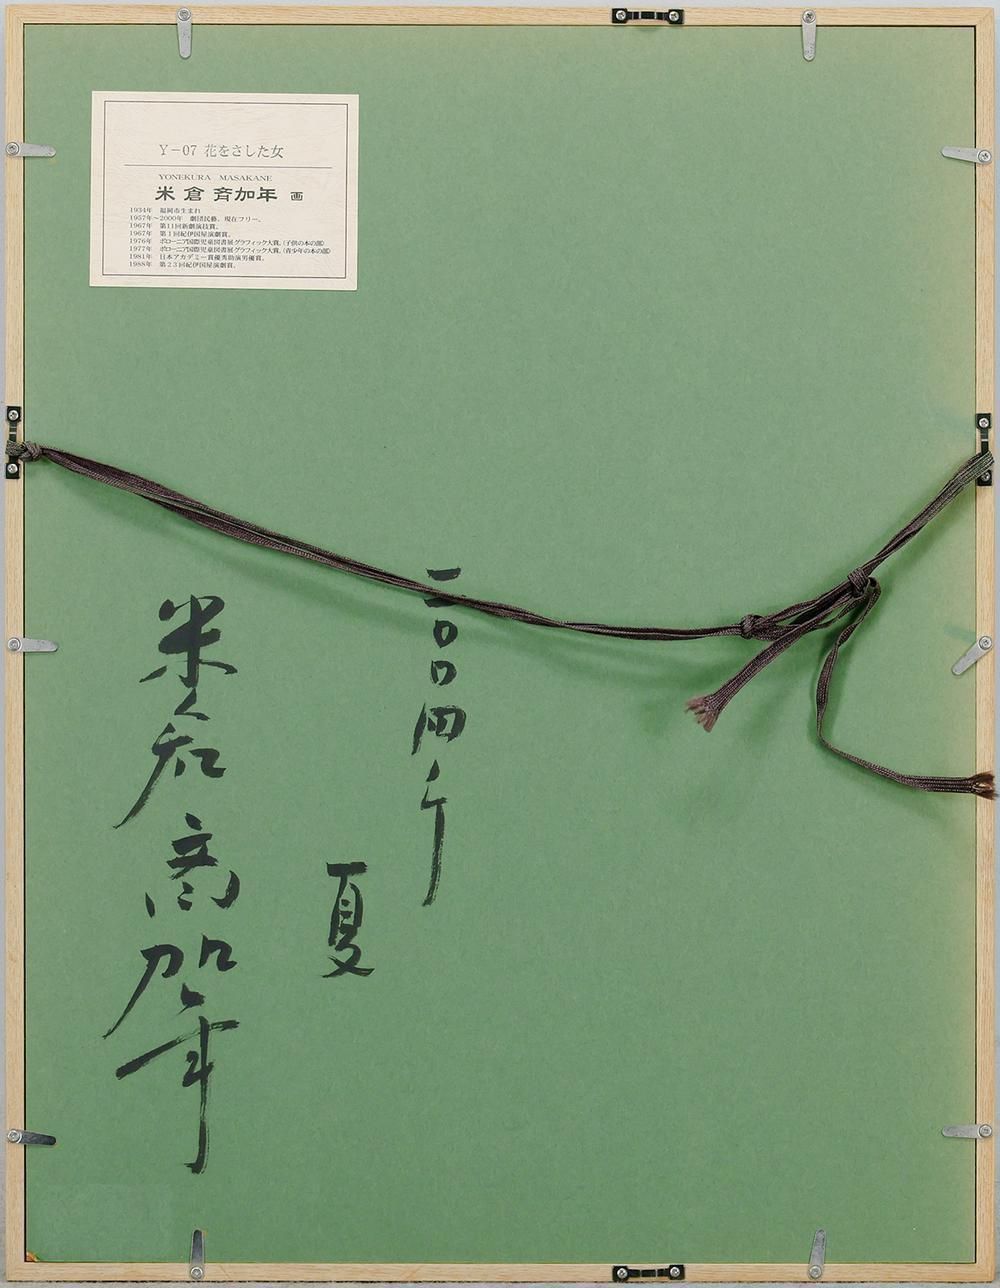 Y-07 花をさした女
YONEKURA MASAKANE
米倉斉加年 画
1934年 福岡市生まれ
1957年～2000年 劇団民藝。現在フリー。
1967年 第11回新劇演技賞。
1967年 第1回紀伊国屋演劇賞。
1976年 ボローニア国際児童図書展グラフィック大賞。(子供の本の部)
1977年 ボローニア国際児童図書展グラフィック大賞。(青少年の本の部)
1981年 日本アカデミー賞優秀助演男優賞。
1988年 第23回紀伊国屋演劇賞。
二〇〇四年
夏
米倉斉加年